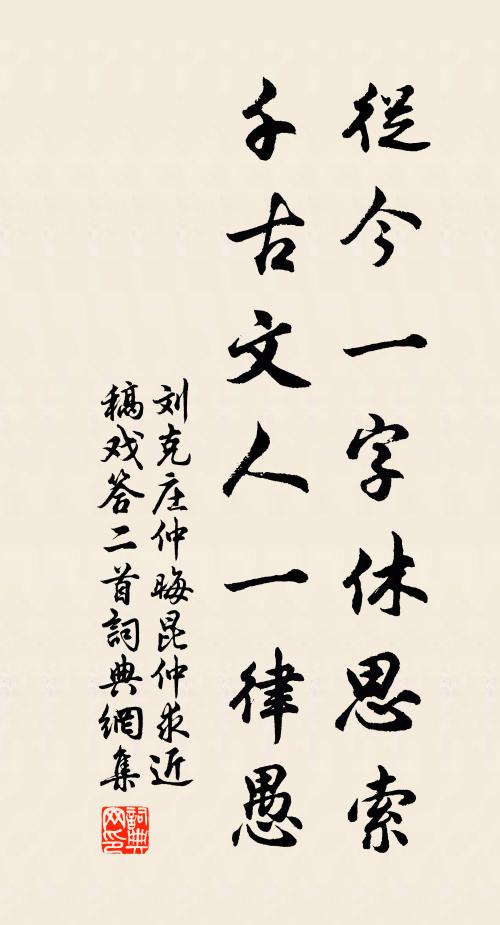 從今一字休思索
千古文人一律愚
刘克庄仲晦昆仲求近
稿戏答二首詞典網集
詞典
网印